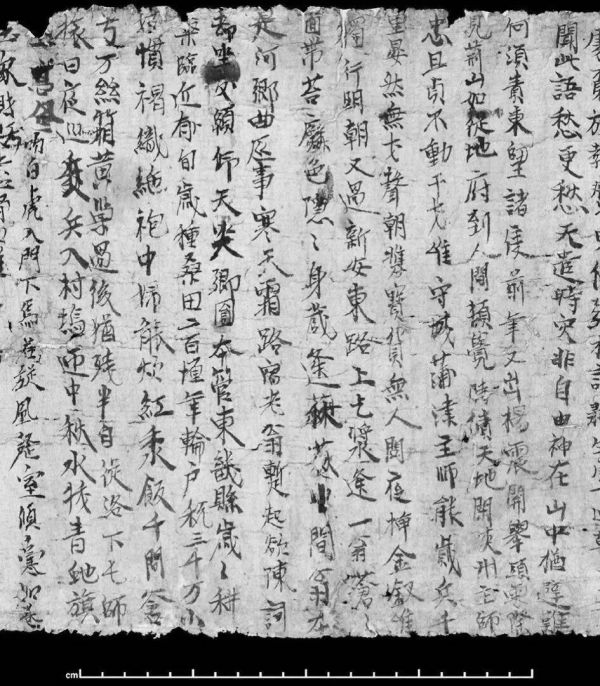 聞此語愁更愁天遣時灾非自由神在山中猶避難
何須責東望諸侯前年又出楊震開舉頭雲際
見荊山如從地府到人間頓覺時清天地閑陝州主帥
忠且貞不動干戈唯守城蒲津主師能戢兵千
里晏然無戈聲朝攜寶貨無人問夜插金釵唯
獨行明朝又過新安東路上乞漿逢一翁蒼〻
面帶苔蘚色隱〻身藏蓬荻中問翁本
是何鄉曲底事寒天霜路宿老翁暫起欲陳詞
却坐支頤仰天哭鄉園本管東畿縣歲〻耕
桑臨近甸歲種桑田二百壥年輪戶稅三千万小
姑慣褐織絁袍中婦能炊紅黍飯千間倉
兮万絲箱黃巢過後猶殘半自從洛下屯師
旅日夜巡兵入村塢匣中秋水拔青虵旗
白虎入門下馬若旋風罄室傾囊如卷
家財
cm